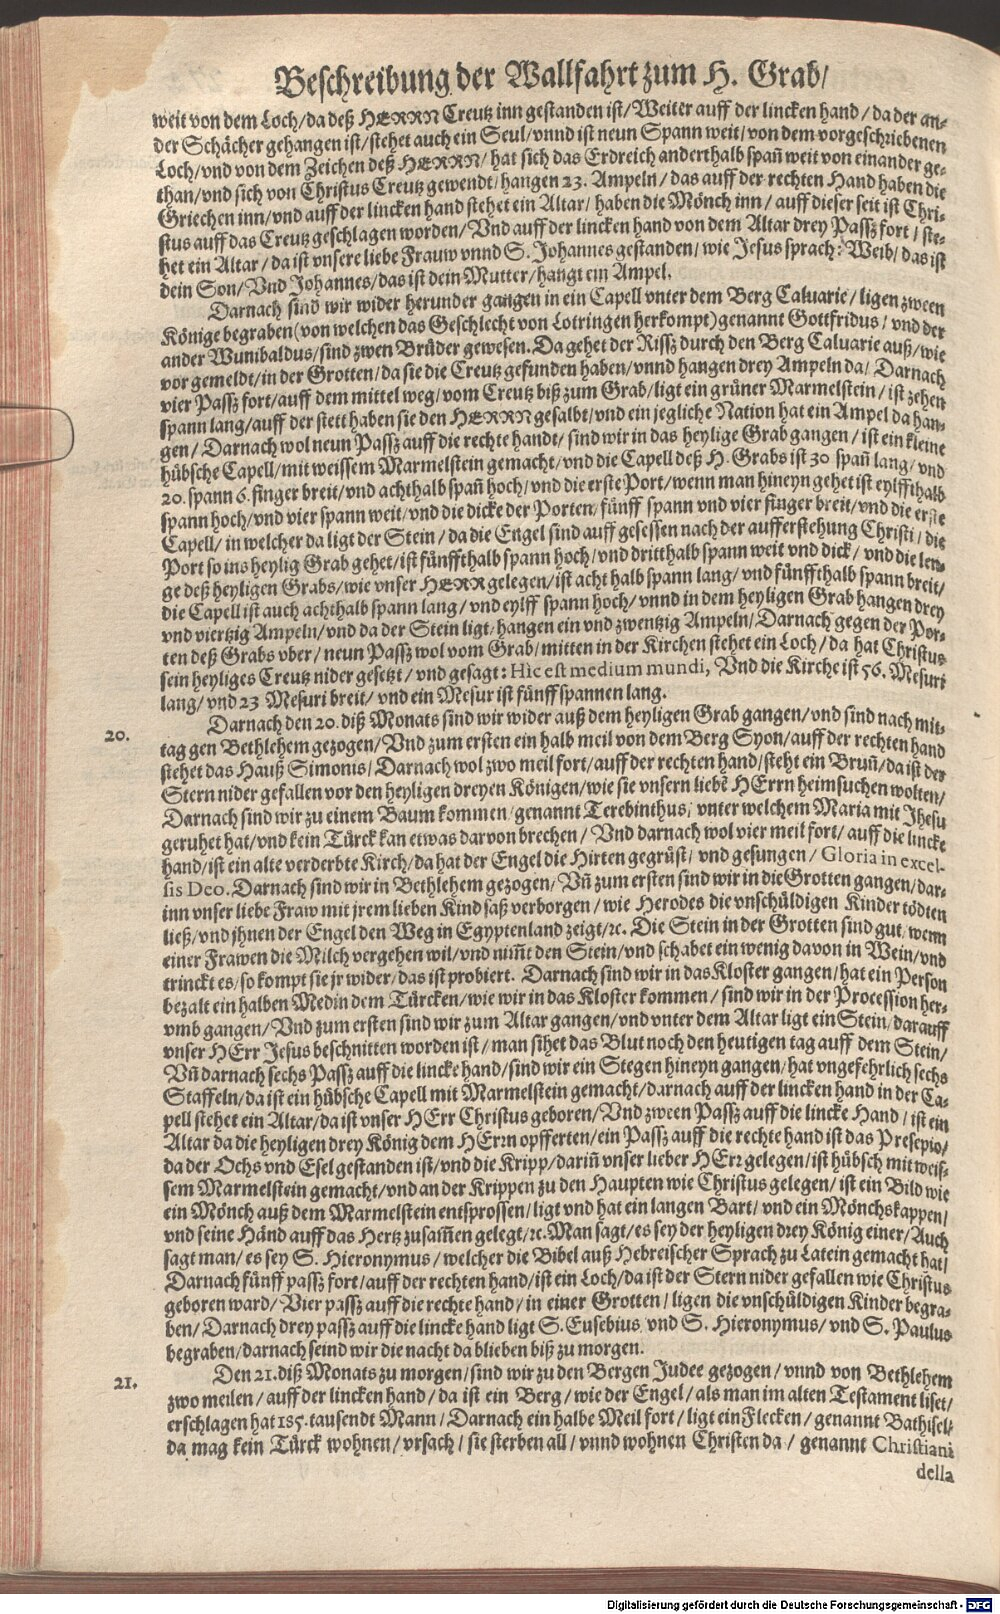 Beschreibung der Wallfahrt zum H. Grab/
weit von dem Loch/da deß HERRN Creutz inn gestanden ist/Weiter auff der lincken hand/da der an-
der Schächer gehangen ist/stehet auch ein Seul/vnnd ist neun Spann weit/von dem vorgeschriebenen
Loch/vnd von dem Zeichen deß HERRN/hat sich das Erdreich anderthalb spañ weit von einander ge-
than/vnd sich von Christus Creutz gewendt/hangen 23. Ampeln/das auff der rechten Hand haben die
Griechen inn/vnd auff der lincken hand stehet ein Altar/haben die Mönch inn/auff dieser seit ist Chri-
stus auff das Creutz geschlagen worden/Vnd auff der lincken hand von dem Altar drey Passz fort/ste-
het ein Altar/da ist vnsere liebe Frauw vnnd S. Johannes gestanden/wie Jesus sprach: Weib/das ist
dein Son/Vnd Johannes/das ist dein Mutter/hangt ein Ampel.
Darnach sind wir wider herunder gangen in ein Capell vnter dem Berg Caluarie/ligen zween
Könige begraben(von welchen das Geschlecht von Lotringen herkompt)genannt Gottfridus/vnd der
ander Wunibaldus/sind zwen Brüder gewesen. Da gehet der Rissz durch den Berg Caluarie auß/wie
vor gemeldt/in der Grotten/da sie die Creutz gefunden haben/vnnd hangen drey Ampeln da/Darnach
vier Passz fort/auff dem mittel weg/vom Creutz biß zum Grab/ligt ein grüner Marmelstein/ist zehen
spann lang/auff der stett haben sie den HERRN gesalbt/vnd ein jegliche Nation hat ein Ampel da han-
gen/Darnach wol neun Passz auff die rechte handt/sind wir in das heylige Grab gangen/ist ein kleine
hübsche Capell/mit weissem Marmelstein gemacht/vnd die Capell deß H. Grabs ist 30 spañ lang/vnd
20. spann 6. finger breit/vnd achthalb spañ hoch/vnd die erste Port/wenn man hineyn gehet ist eylffthalb
spann hoch/vnd vier spann weit/vnd die dicke der Porten/fünff spann vnd vier finger breit/vnd die erste
Capell/in welcher da ligt der Stein/da die Engel sind auff gesessen nach der aufferstehung Christi/die
Port so ins heylig Grab gehet/ist fünffthalb spann hoch/vnd dritthalb spann weit vnd dick/vnd die len-
ge deß heyligen Grabs/wie vnser HERR gelegen/ist acht halb spann lang/vnd fünffthalb spann breit/
die Capell ist auch achthalb spann lang/vnd eylff spann hoch/vnnd in dem heyligen Grab hangen drey
vnd viertzig Ampeln/vnd da der Stein ligt/hangen ein vnd zwentzig Ampeln/Darnach gegen der Por-
ten deß Grabs vber/neun Passz wol vom Grab/mitten in der Kirchen stehet ein Loch/da hat Christus
sein heyliges Creutz nider gesetzt/vnd gesagt: Hic est medium mundi, Vnd die Kirche ist 56. Mesuri
lang/vnd 23 Mesuri breit/vnd ein Mesur ist fünff spannen lang.
20. Darnach den 20. diß Monats sind wir wider auß dem heyligen Grab gangen/vnd sind nach mit-
tag gen Bethlehem gezogen/Vnd zum ersten ein halb meil von dem Berg Syon/auff der rechten hand
stehet das Hauß Simonis/Darnach wol zwo meil fort/auff der rechten hand/steht ein Bruñ/da ist der
Stern nider gefallen vor den heyligen dreyen Königen/wie sie vnsern liebē HErrn heimsuchen wolten/
Darnach sind wir zu einem Baum kommen/genannt Terebinthus/vnter welchem Maria mit Jhesu
geruhet hat/vnd kein Türck kan etwas darvon brechen/Vnd darnach wol vier meil fort/auff die lincke
hand/ist ein alte verderbte Kirch/da hat der Engel die Hirten gegrüst/vnd gesungen/Gloria in excel-
sis Deo. Darnach sind wir in Bethlehem gezogen/Vñ zum ersten sind wir in die Grotten gangen/dar-
inn vnser liebe Fraw mit jrem lieben Kind saß verborgen/wie Herodes die vnschüldigen Kinder tödten
ließ/vnd jhnen der Engel den Weg in Egyptenland zeigt/ꝛc. Die Stein in der Grotten sind gut/wenn
einer Frawen die Milch vergehen wil/vnd nim̄t den Stein/vnd schabet ein wenig davon in Wein/vnd
trinckt es/so kompt sie jr wider/das ist probiert. Darnach sind wir in das Kloster gangen/hat ein Person
bezalt ein halben Medin dem Türcken/wie wir in das Kloster kommen/sind wir in der Procession her-
vmb gangen/Vnd zum ersten sind wir zum Altar gangen/vnd vnter dem Altar ligt ein Stein/darauff
vnser HErr Jesus beschnitten worden ist/man sihet das Blut noch den heutigen tag auff dem Stein/
Vñ darnach sechs Passz auff die lincke hand/sind wir ein Stegen hineyn gangen/hat vngefehrlich sechs
Staffeln/da ist ein hübsche Capell mit Marmelstein gemacht/darnach auff der lincken hand in der Ca-
pell stehet ein Altar/da ist vnser HErr Christus geboren/Vnd zween Passz auff die lincke Hand/ist ein
Altar da die heyligen drey König dem HErrn opfferten/ein Passz auff die rechte hand ist das Presepio/
da der Ochs vnd Esel gestanden ist/vnd die Kripp/dariñ vnser lieber HErr gelegen/ist hübsch mit weis-
sem Marmelstein gemacht/vnd an der Krippen zu den Haupten wie Christus gelegen/ist ein Bild wie
ein Mönch auß dem Marmelstein entsprossen/ligt vnd hat ein langen Bart/vnd ein Mönchskappen/
vnd seine Händ auff das Hertz zusam̄en gelegt/ꝛc. Man sagt/es sey der heyligen drey König einer/Auch
sagt man/es sey S. Hieronymus/welcher die Bibel auß Hebreischer Sprach zu Latein gemacht hat/
Darnach fünff passz fort/auff der rechten hand/ist ein Loch/da ist der Stern nider gefallen wie Christus
geboren ward/Vier passz auff die rechte hand/in einer Grotten/ligen die vnschüldigen Kinder begra-
ben/Darnach drey passz auff die lincke hand ligt S. Eusebius vnd S. Hieronymus/vnd S. Paulus
begraben/darnach seind wir die nacht da blieben biß zu morgen.
21. Den 21. diß Monats zu morgen/sind wir zu den Bergen Judee gezogen/vnnd von Bethlehem
zwo meilen/auff der lincken hand/da ist ein Berg/wie der Engel/als man im alten Testament liset/
erschlagen hat 185. tausendt Mann/Darnach ein halbe Meil fort/ligt ein Flecken/genannt Bathisel/
da mag kein Türck wohnen/vrsach/sie sterben all/vnnd wohnen Christen da/genannt Christiani
della
Digitalisierung gefördert durch die Deutsche Forschungsgemeinschaft - DFG